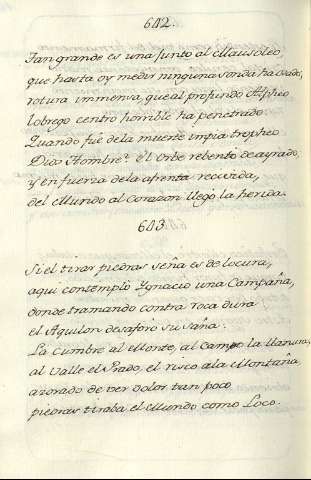 602.
Tan grande es una junto al Mausoleo,
que hasta oy medir ninguna sonda ha osado,
rotura immensa, que al profundo Alpheo
lobrego centro horrible ha penetrado
Quando fuè de la muerte impia tropheo
Dios Hombre? el Orbe rebentò de ayrado,
y en fuerza de la afrenta recevida,
del Mundo al Corazon llegò la herida.
603.
Si el tirar piedras seña es de locura,
aqui contemplo Ygnacio una Campaña,
donde tramando contra roca dura
el Aquilon desaforò su saña.
La Cumbre al Monte, al Campo la llanura,
al Valle el Prado, el risco a la Montaña,
azorado de ver dolor tan poco
piedras tiraba el Mundo como Loco.